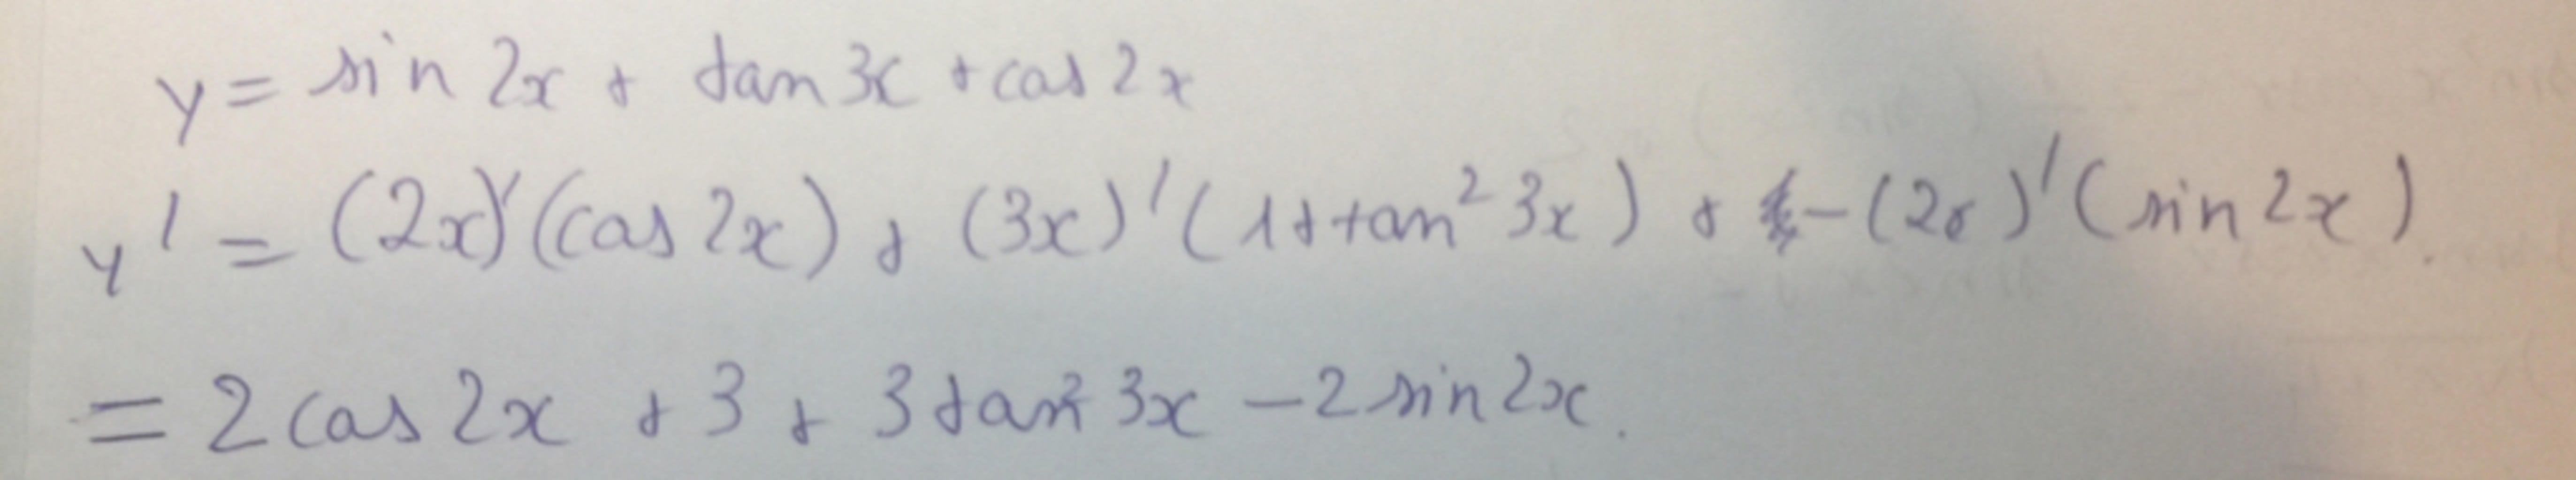 y = sin 2x + tan 3x + cos 2x
y' = (2x)'(cos 2x) + (3x)'(1 + tan² 3x) + -(2x)'(sin 2x).
= 2 cos 2x + 3 + 3 tan² 3x - 2 sin 2x.